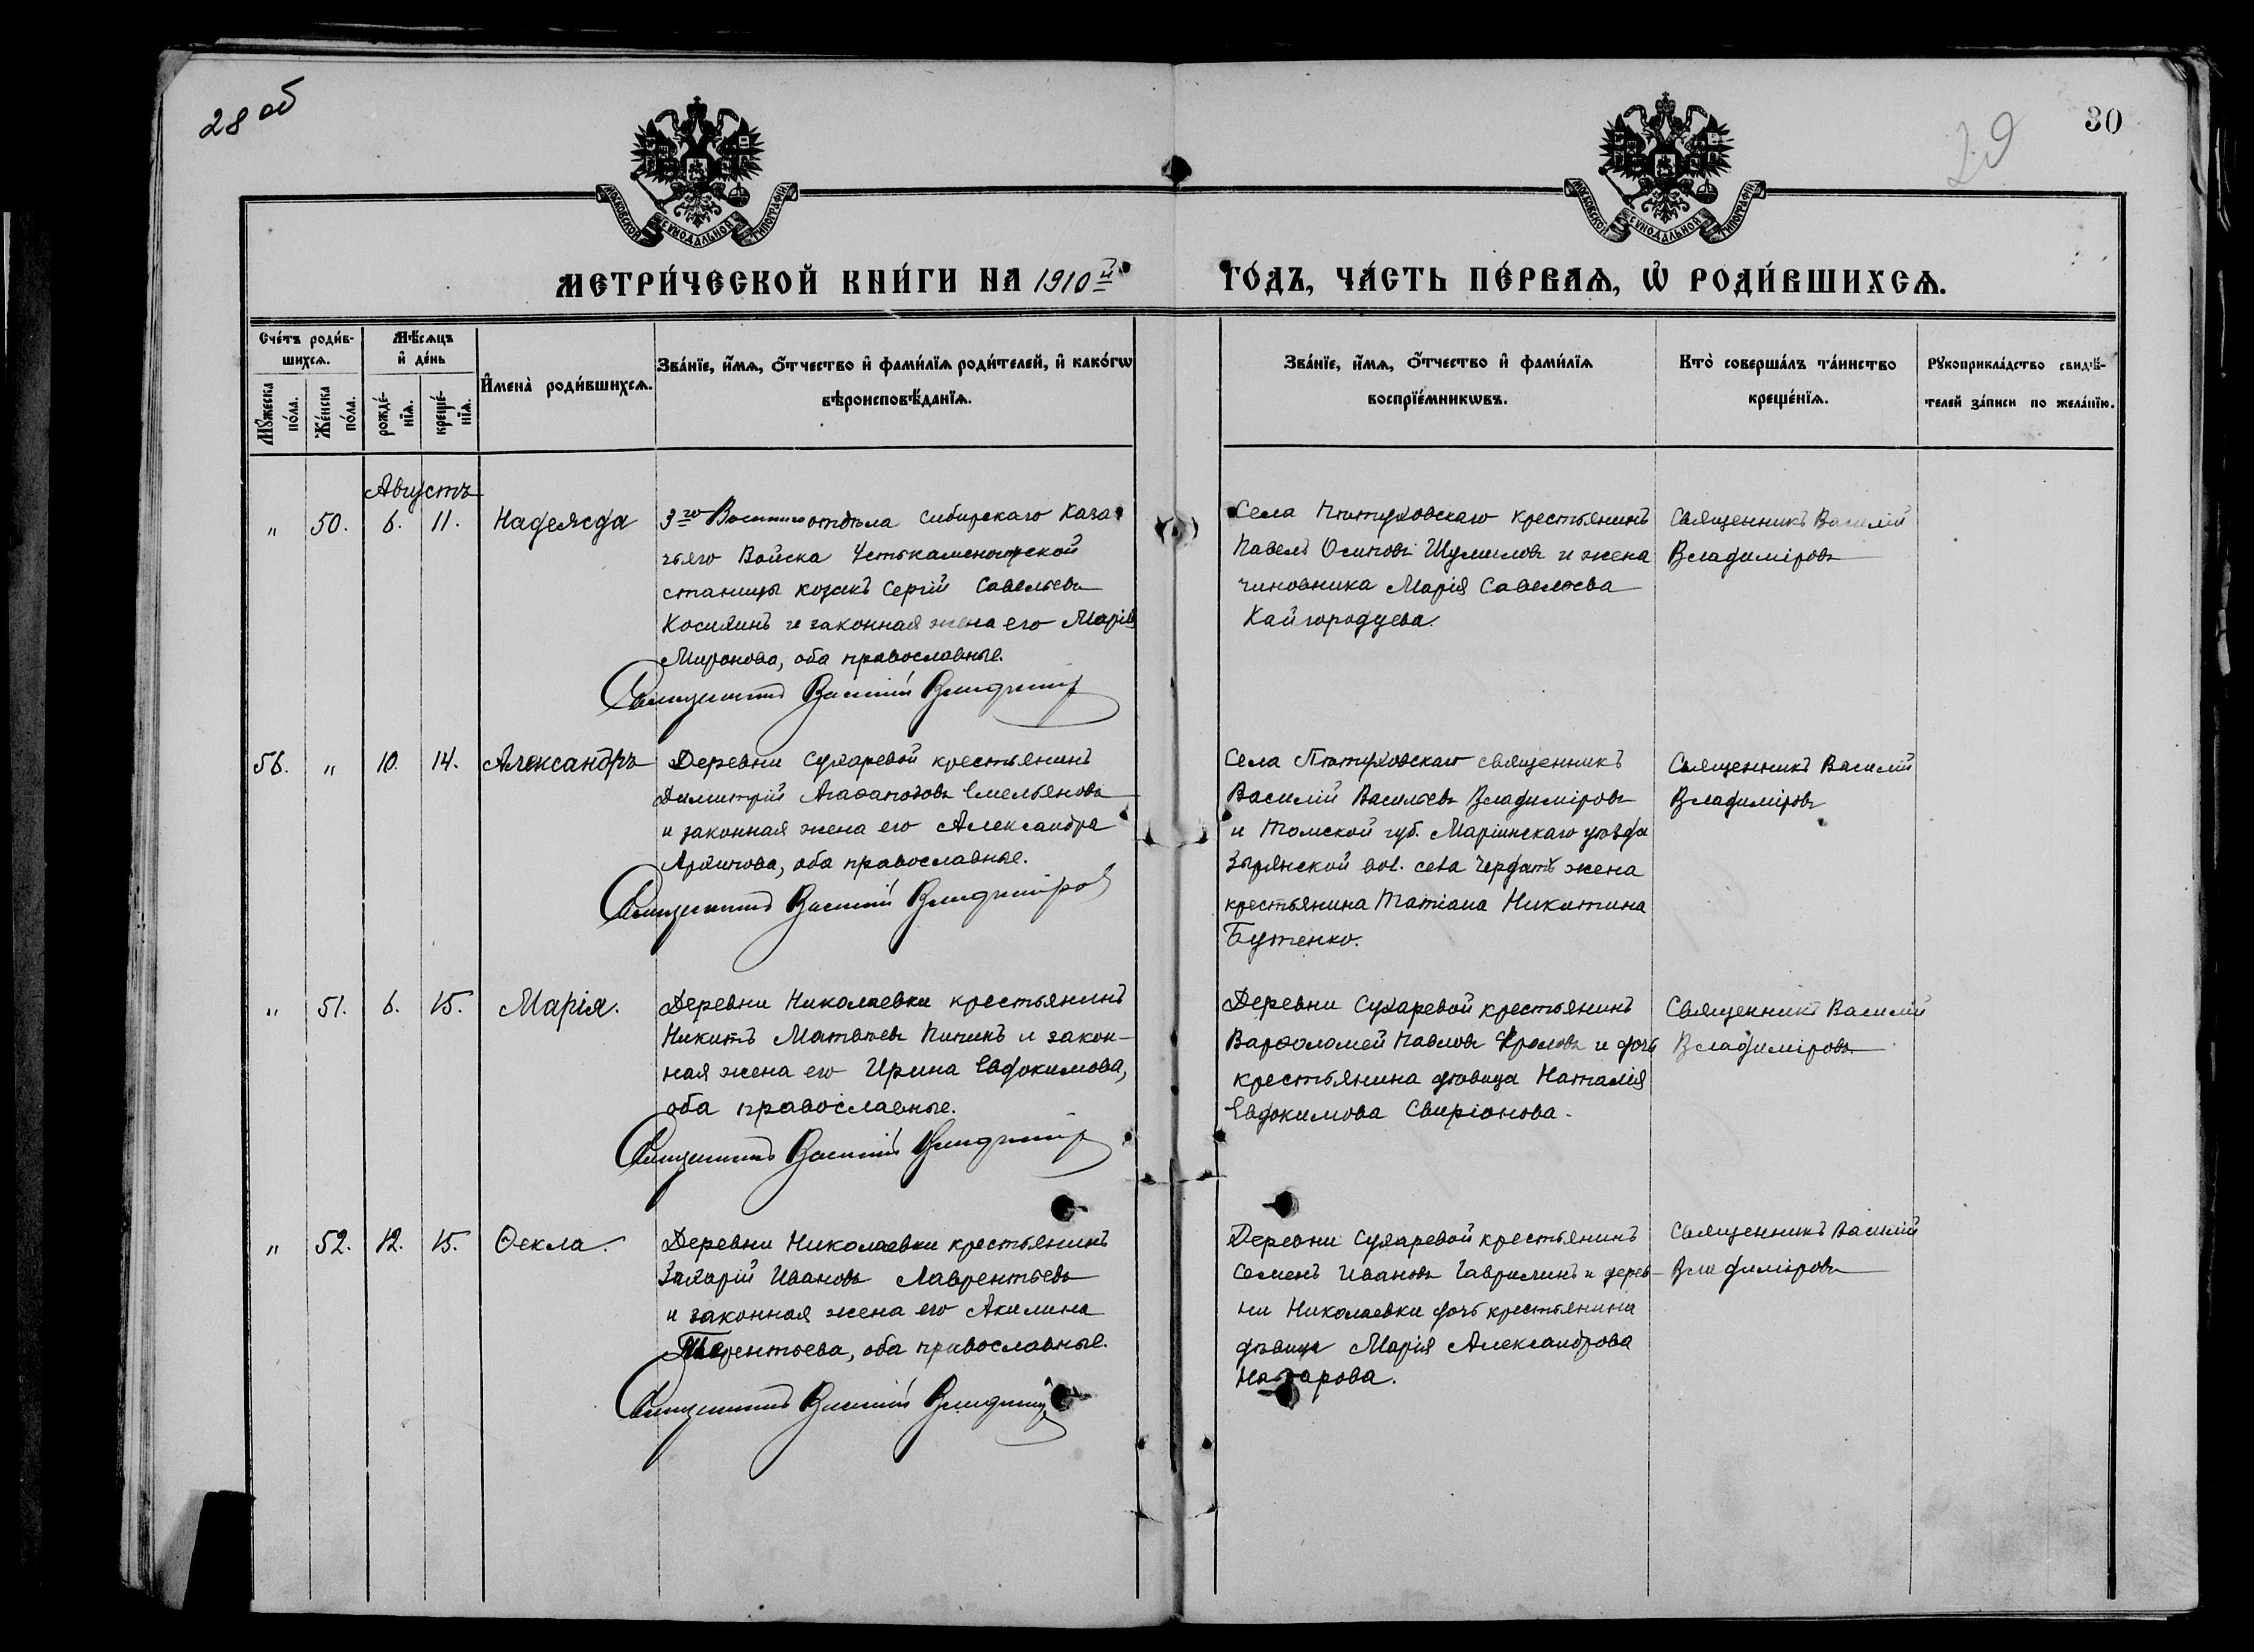 28 об
29
30
МОСКОВСКОЙ СУНОДАЛЬНОЙ ТИПОГРАФІИ
МОСКОВСКОЙ СУНОДАЛЬНОЙ ТИПОГРАФІИ
МЕТРИ́ЧЕСКОЙ КНИ́ГИ НА 1910й ГО́ДЪ, ЧА́СТЬ ПЕ́РВАѦ, Ѡ҆ РОДИ́ВШИХСѦ.
Сче́тъ роди́в-
шихсѧ.
Мꙋ́жеска
по́ла.
Же́нска
по́ла.
Мѣ́сѧцъ
и҆ де́нь
рожде́-
нїѧ.
креще́-
нїѧ.
И҆мена̀ роди́вшихсѧ.
Зва́нїе, и҆́мѧ, ѻ҆́тчество и҆ фами́лїѧ роди́телей, и҆ како́гѡ
вѣроисповѣ́данїѧ.
Зва́нїе, и҆́мѧ, ѻ҆́тчество и҆ фами́лїѧ
воспрїе́мникѡвъ.
Кто̀ соверша́лъ та́инство
креще́нїѧ.
Рꙋкоприкла́дство свидѣ́-
телей за́писи по жела́нїю.
Августъ
" 50. 6. 11. Надежда
3го Военнаго отдѣла Сибирскаго Каза
чьяго Войска Устькаменогорской
станицы козакъ Сергій Савельевъ
Косихинъ и законная жена его Марія
Миронова, оба православные.
Священникъ Василій Владиміров
Села Пѣтуховскаго крестьянинъ
Павелъ Осиповъ Шумиловъ и жена
чиновника Марія Савельева
Кайгородцева.
Священникъ Василій
Владиміровъ
56. " 10. 14. Александръ
Деревни Сухаревой крестьянинъ
Димитрій Агаѳаподовъ Емельяновъ
и законная жена его Александра
Архипова, оба православные.
Священникъ Василій Владиміров
Села Пѣтуховскаго священникъ
Василій Васильевъ Владиміровъ
и Томской губ. Маріинскаго уѣзда
Зырянской вол. села Чердатъ жена
крестьянина Татіана Никитина
Бутенко.
Священникъ Василій
Владиміровъ
" 51. 6. 15. Марія.
Деревни Николаевки крестьянинъ
Никитъ Матвѣевъ Пипикъ и закон-
ная жена его Ирина Евдокимова,
оба православные.
Священникъ Василій Владиміров
Деревни Сухаревой крестьянинъ
Варѳоломей Павловъ Фроловъ и дочь
крестьянина дѣвица Наталія
Евдокимова Свиріонова.
Священникъ Василій
Владиміровъ
" 52. 12. 15. Ѳекла.
Деревни Николаевки крестьянинъ
Захарій Ивановъ Лаврентьевъ
и законная жена его Акилина
Терентьева, оба православные.
Священникъ Василій Владиміров
Деревни Сухаревой крестьянинъ
Семенъ Ивановъ Гаврилинъ и дерев-
ни Николаевки дочь крестьянина
дѣвица Марія Александрова
Назарова.
Священникъ Василій
Владиміровъ